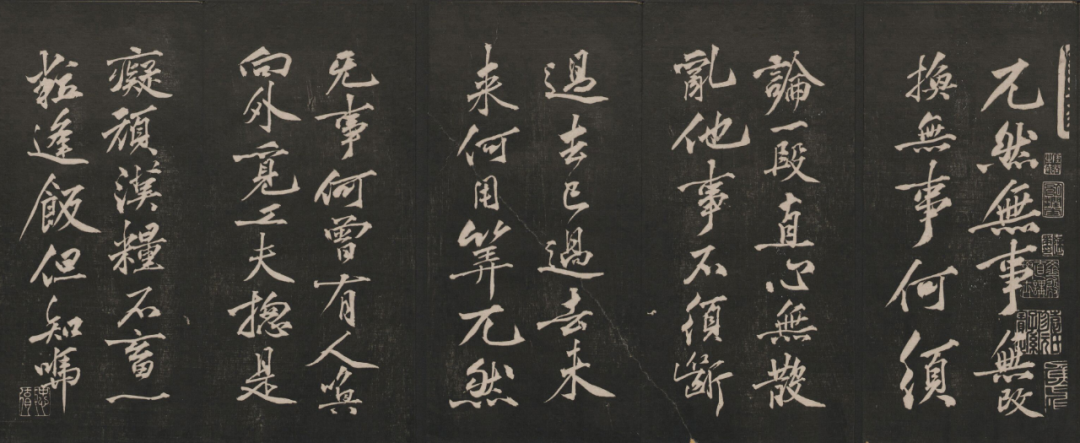 兀然無事無改
換無事何須
論一段直心無散
亂他事不須斷
過去已過去未
来何用筭兀然
无事何曾有人喚
向外覓工夫揔是
癡頑漢糧不畜一
粒逢飯但知嗎